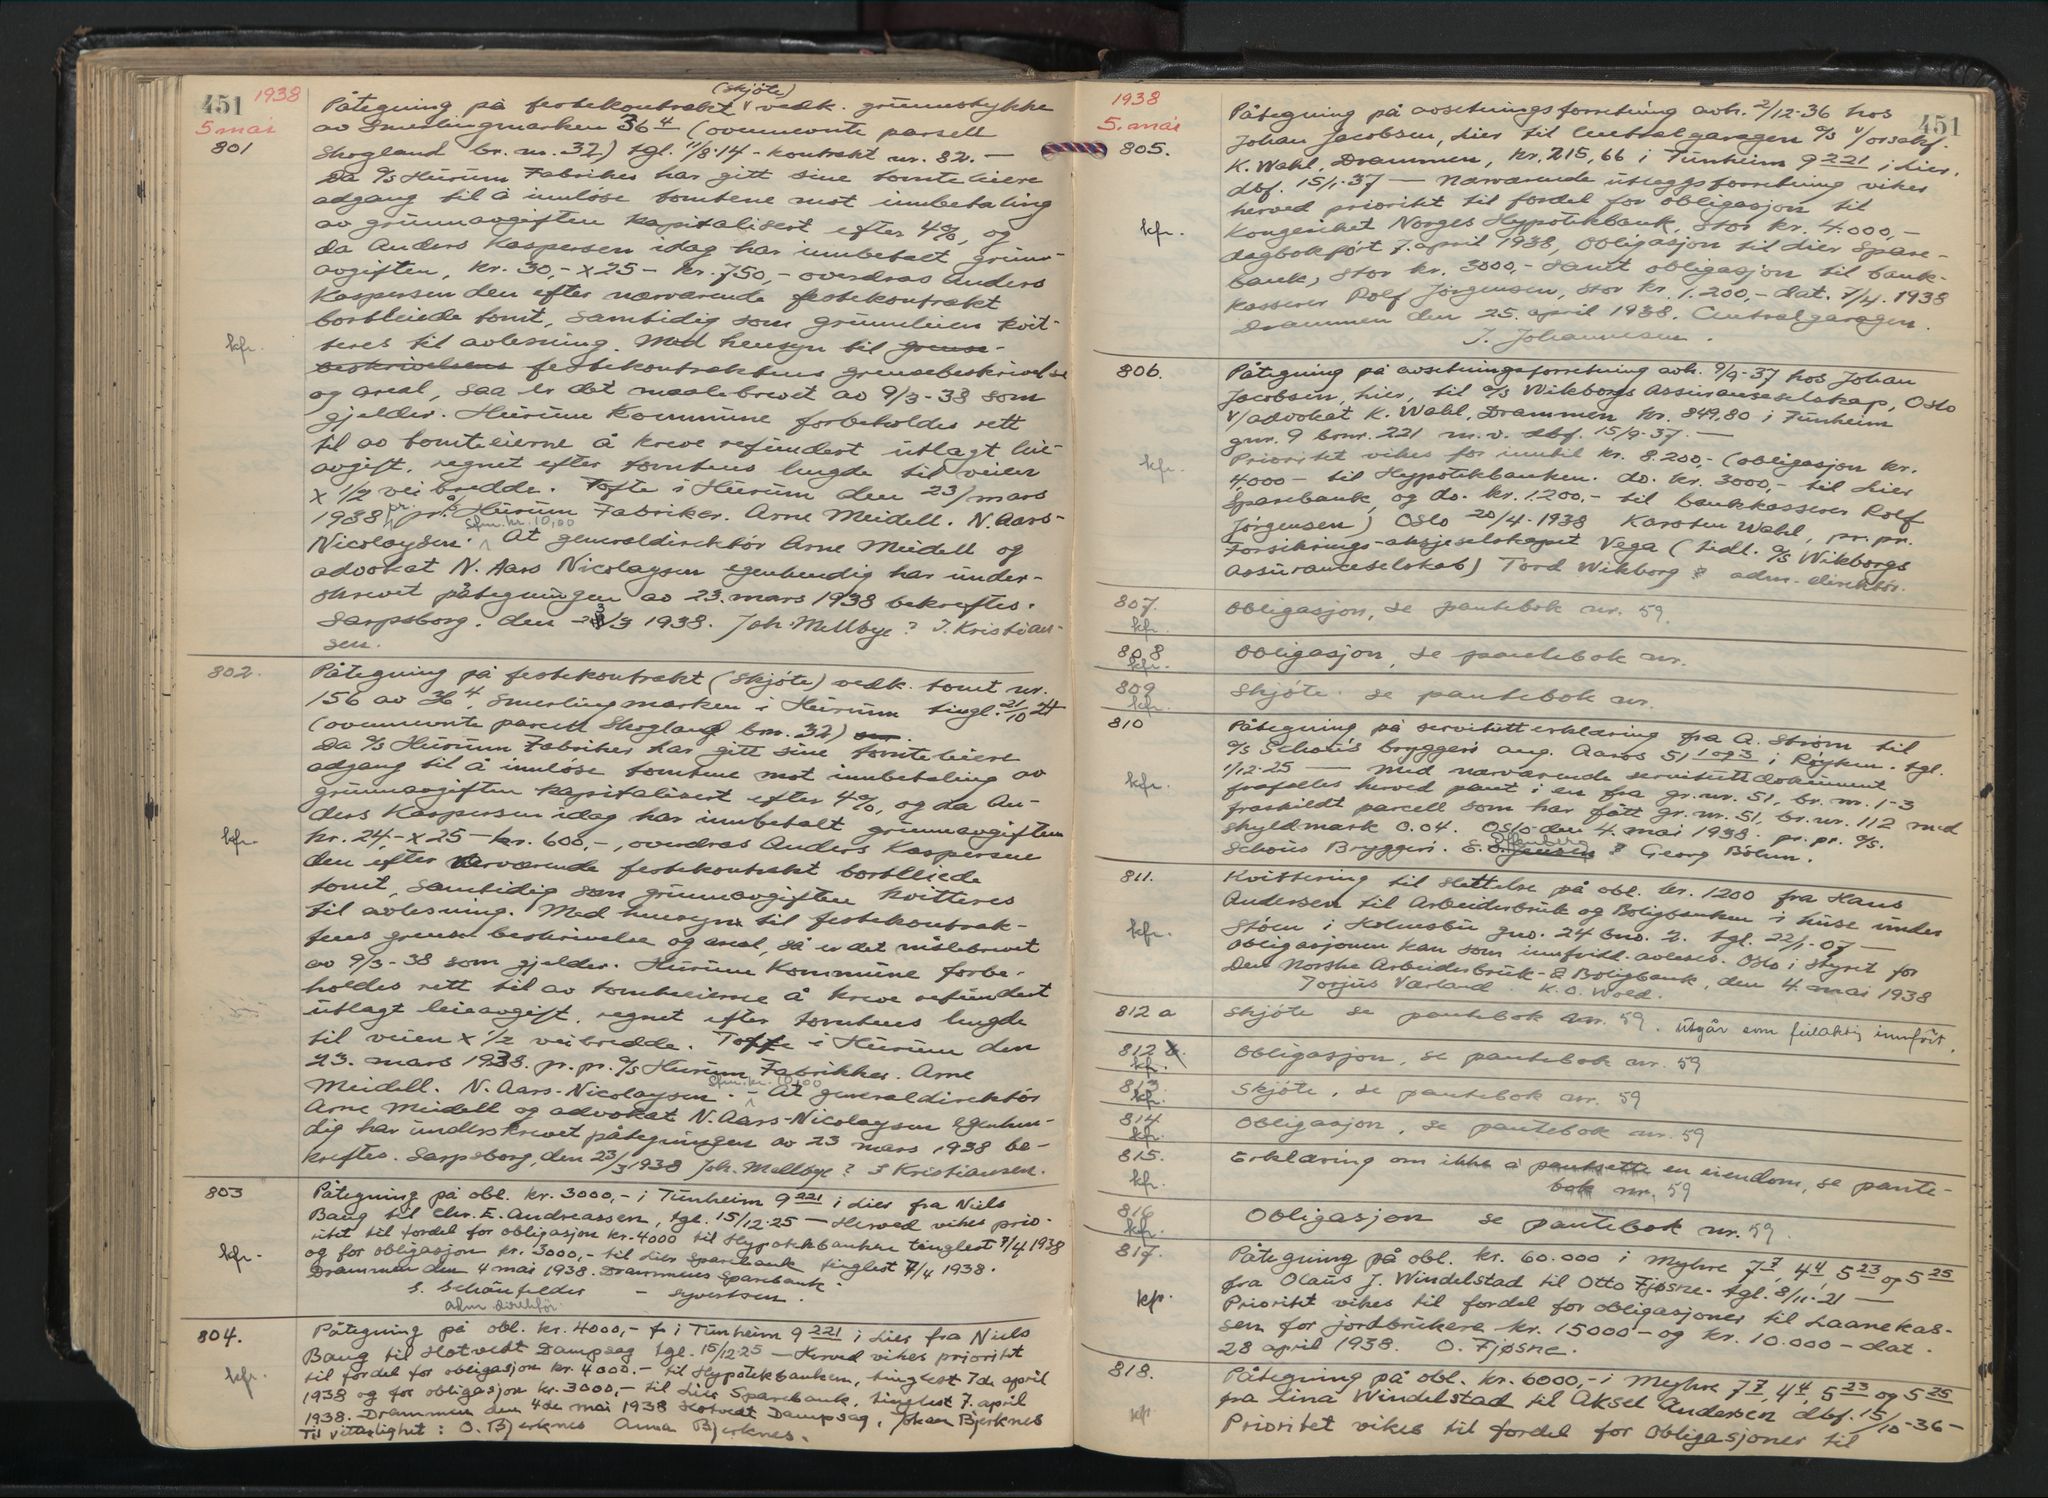 451 1938
5 mai
801
(skjöte)
Påtegning på festekontrakt vedk. grunnstykke
av Smerlingmarken 36⁴ (ovennevnte parsell
Skogland br. nr. 32) tgl. 11/8-14 - kontrakt nr. 82. —
Da A/S Hurum Fabriker har gitt sine tomteleiere
adgang til å innlöse tomtene mot innbetaling
av grunnavgiften kapitalisert efter 4%, og
da Anders Kaspersen idag har innbetalt grunn-
avgiften, kr. 30,- x 25 - kr. 750,- overdras Anders
Kaspersen den efter nærværende festekontrakt
bortleiede tomt, samtidig som grunnleien kvit-
kfr.
teres til avlesning. Med hensyn til grense-
beskrivelsens festekontraktens grensebeskrivelse
og areal, saa er det maalebrevet av 9/3-38 som
gjelder. Hurum Kommune forbeholdes rett
til av tomteeierne å kreve refundert utlagt leie-
avgift, regnet efter tomtens lengde til veien
x 1/2 veibredde. Tofte i Hurum den 23/mars
1938 pr. pr. A/S Hurum Fabriker. Arne Meidell. N. Aars-
Stm. kr. 10,00
Nicolaysen. At generaldirektör Arne Meidell og
advokat N. Aars Nicolaysen egenhendig har under-
skrevet påtegningen av 23. mars 1938 bekreftes.
Sarpsborg. den 23/3 1938. Joh. Mellbye? J. Kristian-
sen.
802.
Påtegning på festekontrakt (skjöte) vedk. tomt nr.
156 av 36⁴, Smerlingmarken i Hurum tingl. 21/10 24
(ovennevnte parsell Skogland bnr. 32)
Da A/S Hurum Fabriker har gitt sine tomteleiere
adgang til å innlöse tomtene mot innbetaling av
grunnavgiften kapitalisert efter 4%, og da An-
ders Kaspersen idag har innbetalt grunnavgiften
kfr.
kr. 24,- x 25 - kr. 600,-, overdras Anders Kaspersen
den efter nærværende festekontrakt bortleiede
tomt, samtidig som grunnavgiften kvitteres
til avlesning. Med hensyn til festekontrak-
tens grense beskrivelse og areal, så er det målebrevet
av 9/3-38 som gjelder. Hurum Kommune forbe-
holdes rett til av tomteeierne å kreve refundert
utlagt leieavgift, regnet efter tomtens lengde
til veien x 1/2 veibredde. Tofte i Hurum den
23. mars 1938. p.p. A/S Hurum Fabrikker. Arne
Stm. kr. 10,00
Meidell. N. Aars-Nicolaysen. - At generaldirektör
Arne Meidell og advokat N. Aars-Nicolaysen egenhen-
dig har underskrevet påtegningen av 23 mars 1938 be-
kreftes. Sarpsborg, den 23/3 1938 Joh. Mellbye? J Kristiansen.
803
Påtegning på obl. kr. 3000,- i Tunheim 9 221 i Lier fra Niels
Baug til Chr. E. Andreassen, tgl. 15/12-25 — Herved vikes prio-
ritet til fordel for obligasjon kr. 4000 til Hypotekbanken tinglest 7/4 1938
kfr.
og for obligasjon kr. 3000,- til Lier Sparebank tinglest 7/4 1938.
Drammen den 4 mai 1938. Drammens Sparebank.
E. Schönfelder - Syvertsen.
adm direktör.
804.
Påtegning på obl. kr. 4000,- i Tunheim 9 221 i Lier fra Niels
Baug til Hotvedt Dampsag tgl. 15/12-25 — Herved vikes prioritet
kfr.
til fordel for obligasjon kr. 4000.- til Hypotekbanken, tinglest 7de april
1938 og for obligasjon kr. 3000,- til Lier Sparebank, tinglest 7. april
1938. Drammen den 4de mai 1938 Hotvedt Dampsag, Johan Bjerknes
Til vitterlighet: O. Bjerknes Anna Bjerknes.
1938
5. mai
451
805.
Påtegning på avsetningsforretning avh. 2/12-36 hos
Johan Jacobsen, Lier til Centralgaragen A/S v/orsakf.
K. Wahl, Drammen, kr. 215,66 i Tunheim 9 221 i Lier.
dbf. 15/1-37 — Nærværende utleggsforretning viker
herved prioritet til fordel for obligasjon til
kfr.
Kongeriket Norges Hypotekbank, stor kr. 4.000,-
dagbokfört 7. april 1938, obligasjon til Lier Spare-
bank, stor kr. 3000,- samt obligasjon til bank-
kasserer Rolf Jörgensen, stor kr. 1.200,- dat. 7/4. 1938
Drammen den 25. april 1938. Centralgaragen.
J. Johannesen.
806.
Påtegning på avsetningsforretning avh. 9/9-37 hos Johan
Jacobsen, Lier, til A/S Wikborgs Assuranseselskap, Oslo
v/advokat K. Wahl, Drammen kr. 849,80 i Tunheim
gnr. 9 bnr. 221 m.v. dbf. 15/9-37. —
kfr.
Prioritet vikes for inntil kr. 8.200,- (obligasjon kr.
4000 - til Hypotekbanken. do. kr. 3000,- til Lier
Sparebank, og do. kr. 1.200,- til bankkasserer Rolf
Jörgensen) Oslo 20/4-1938 Karsten Wahl, pr. pr.
Forsikrings-aksjeselskapet Vega (tidl. A/S Wikborgs
Assuranceselskab) Tord Wikborg adm. direktör.
807.
kfr.
Obligasjon, se pantebok nr. 59.
808
kfr.
Obligasjon, se pantebok nr.
809
kfr.
Skjöte. se pantebok nr.
810
Påtegning på servituterklæring fra A. Ström til
A/S Schous bryggeri ang. Aaros 51 1 og 3 i Röyken. tgl.
1/12-25 — Med nærværende servituttdokument
kfr.
frafalles herved pant i en fra gr. nr. 51, br. nr. 1-3
fraskildt parcell som har fått gr. nr. 51, br. nr. 112 med
skyldmark 0.04. Oslo den 4. mai 1938. pr. pr. A/S.
Schous Bryggeri. Georg Böhm.
811.
Kvittering til slettelse på obl. kr. 1200 fra Hans
Andersen til Arbeiderbruk og Boligbanken i huse under
kfr.
Stöen i Holmsbu gno. 24 bno. 2. tgl. 22/1-07 —
Obligasjonen kan som innfridd avleses. Oslo i Styret for
Den Norske Arbeiderbruk- & Boligbank, den 4. mai 1938
Torjus Værland. K. O. Wold.
812 a
Skjöte se pantebok nr. 59. Utgår som feilaktig innfört.
812 b.
kfr.
Obligasjon, se pantebok nr. 59
813
kfr.
Skjöte, se pantebok nr. 59
814
kfr.
Obligasjon, se pantebok nr. 59
815.
kfr.
Erklæring om ikke å pantsette en eiendom, se pante-
bok nr. 59
816
kfr.
Obligasjon se pantebok nr. 59.
817.
Påtegning på obl. kr. 60.000 i Myhre 7⁷, 4⁴, 5 23 og 5 25
fra Olaus J. Windelstad til Otto Fjøsne. tgl. 8/11-21 —
kfr.
Prioritet vikes til fordel for obligasjoner til Laanekas-
sen for jordbrukere kr. 15000 - og kr. 10.000 - dat.
28 april 1938. O. Fjøsne.
818.
Påtegning på obl. kr. 6000,- i Myhre 7⁷, 4⁴, 5 23 og 5 25
kfr.
fra Lina Windelstad til Aksel Andersen dbf. 15/10-36 -
Prioritet vikes til fordel for obligasjoner til